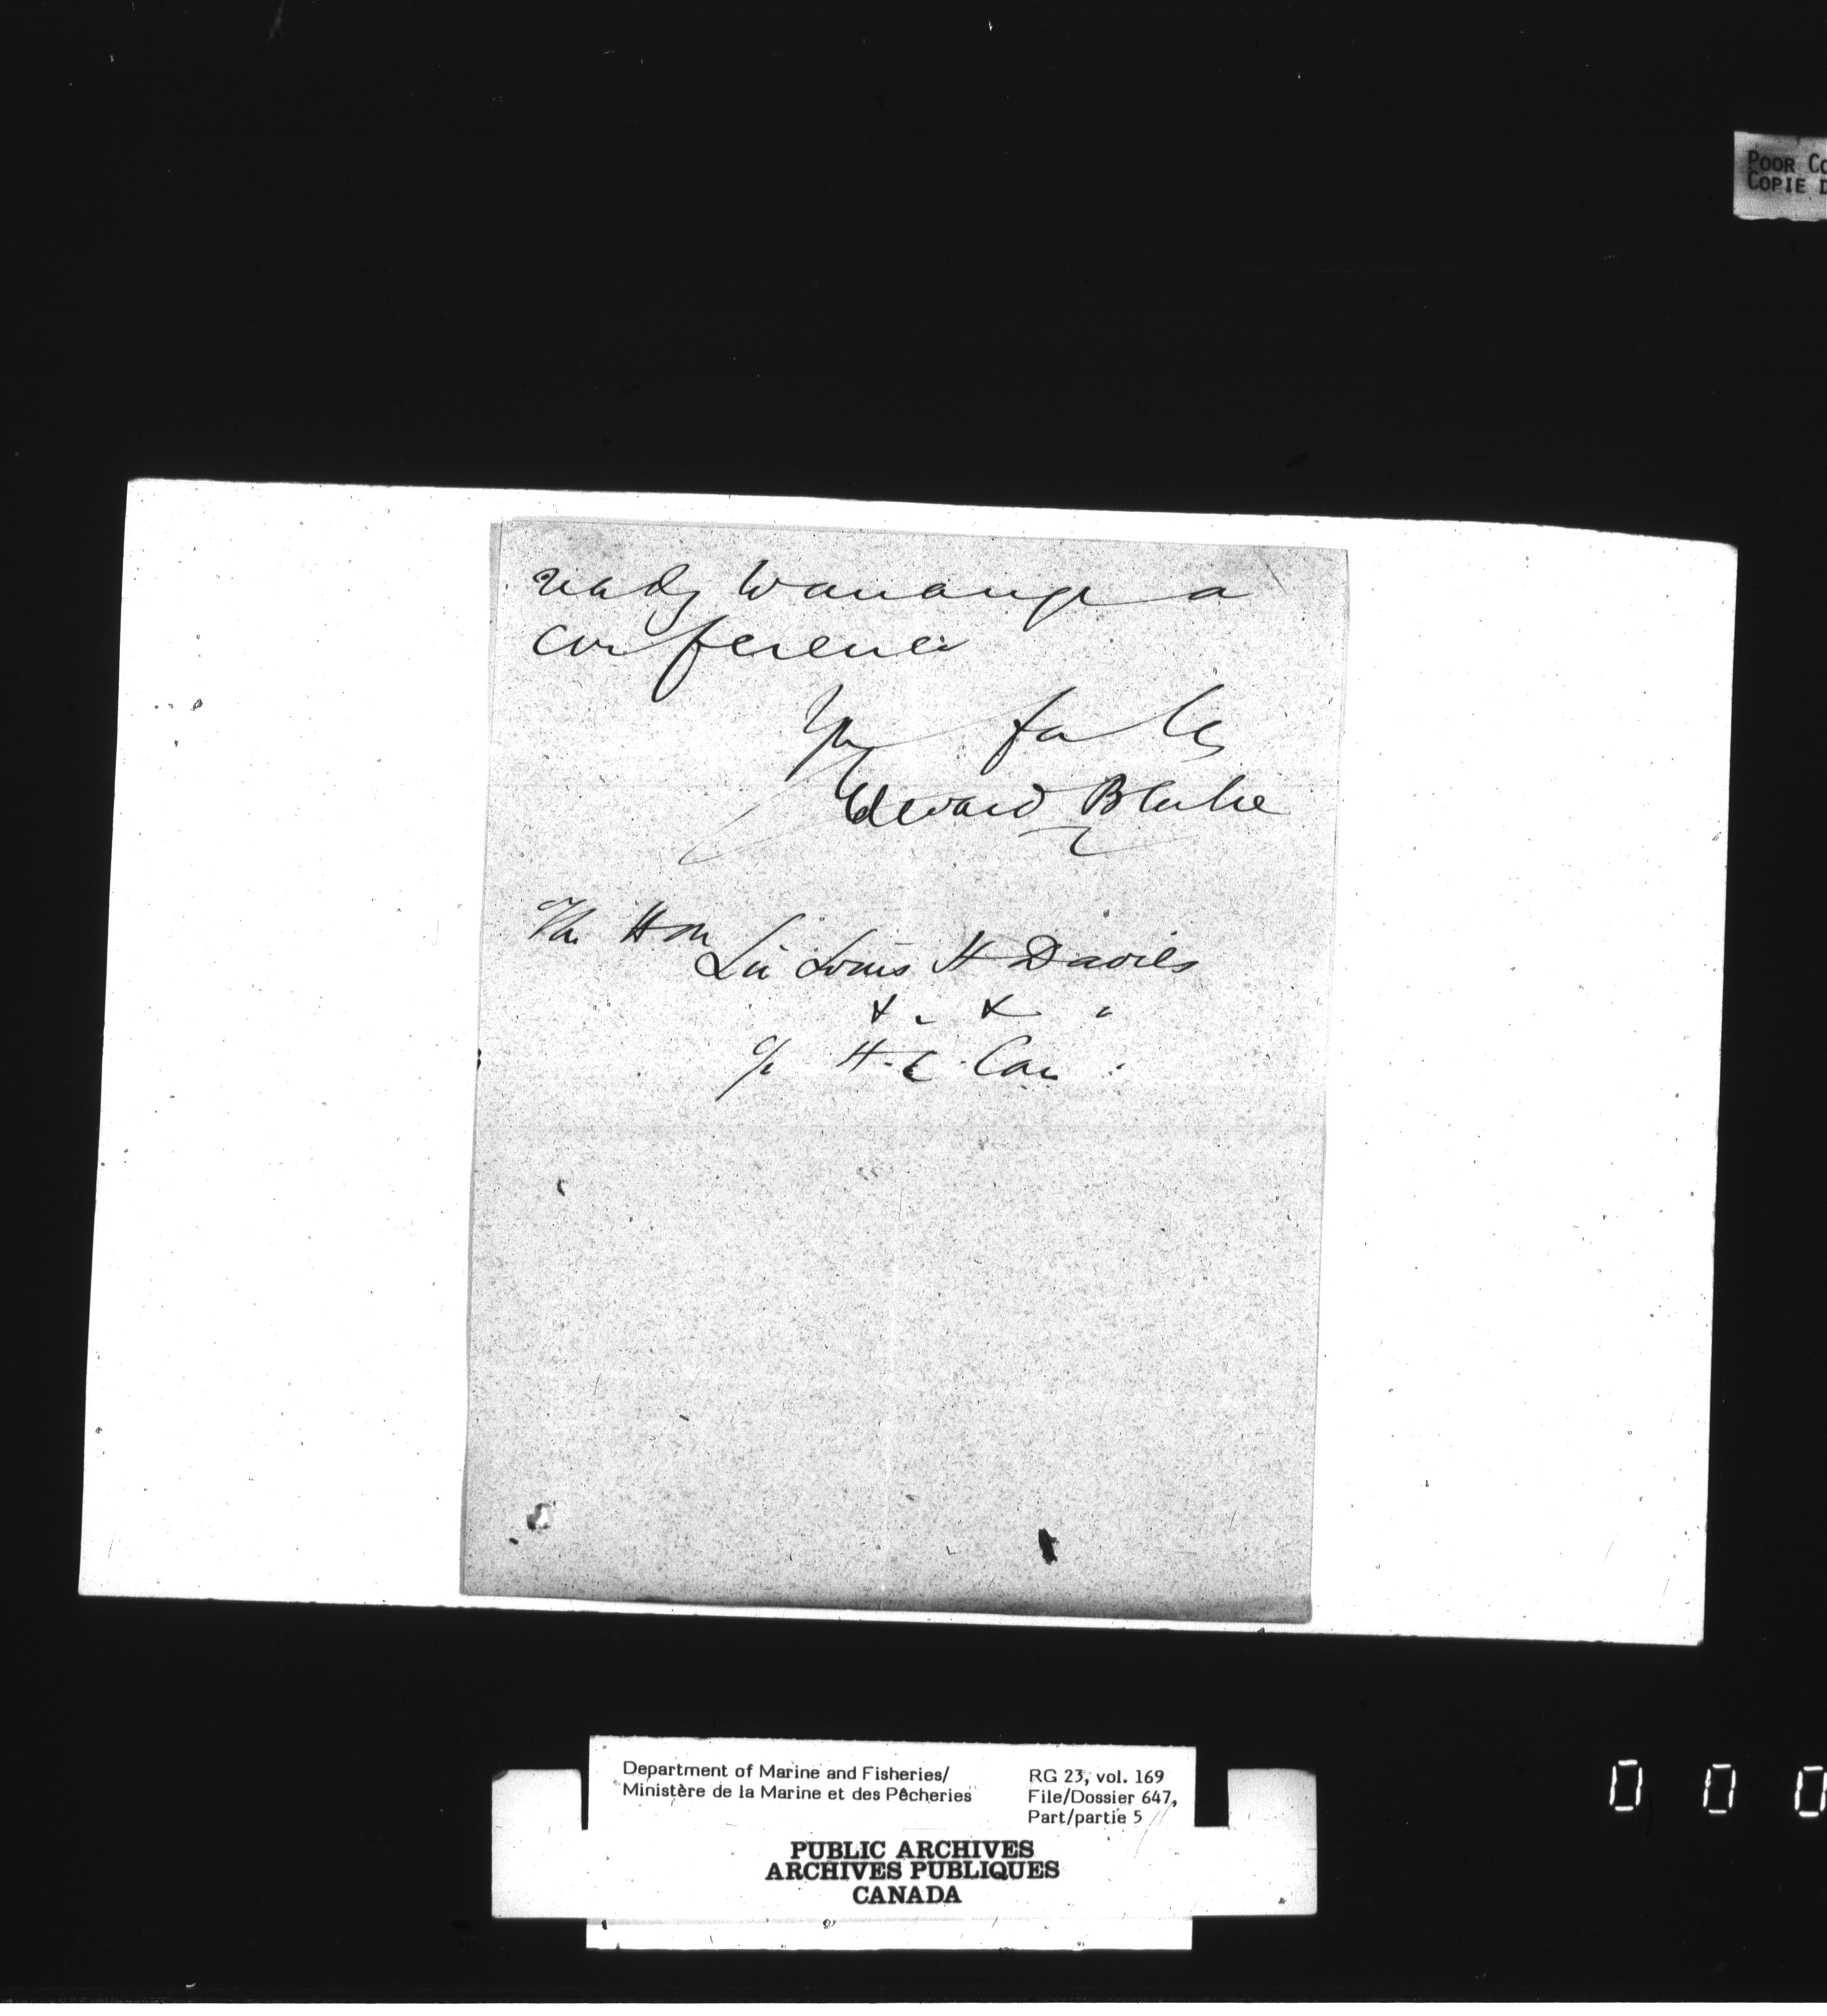 POOR CO
COPIE D
ready to arrange a
conference
Yrs faly
Edward Blake
The Hon
Sir Louis H Davies
&. &.
H. C. Can:
Department of Marine and Fisheries/
Ministère de la Marine et des Pêcheries
RG 23, vol. 169
File/Dossier 647,
Part/partie 5
PUBLIC ARCHIVES
ARCHIVES PUBLIQUES
CANADA
0 0 0